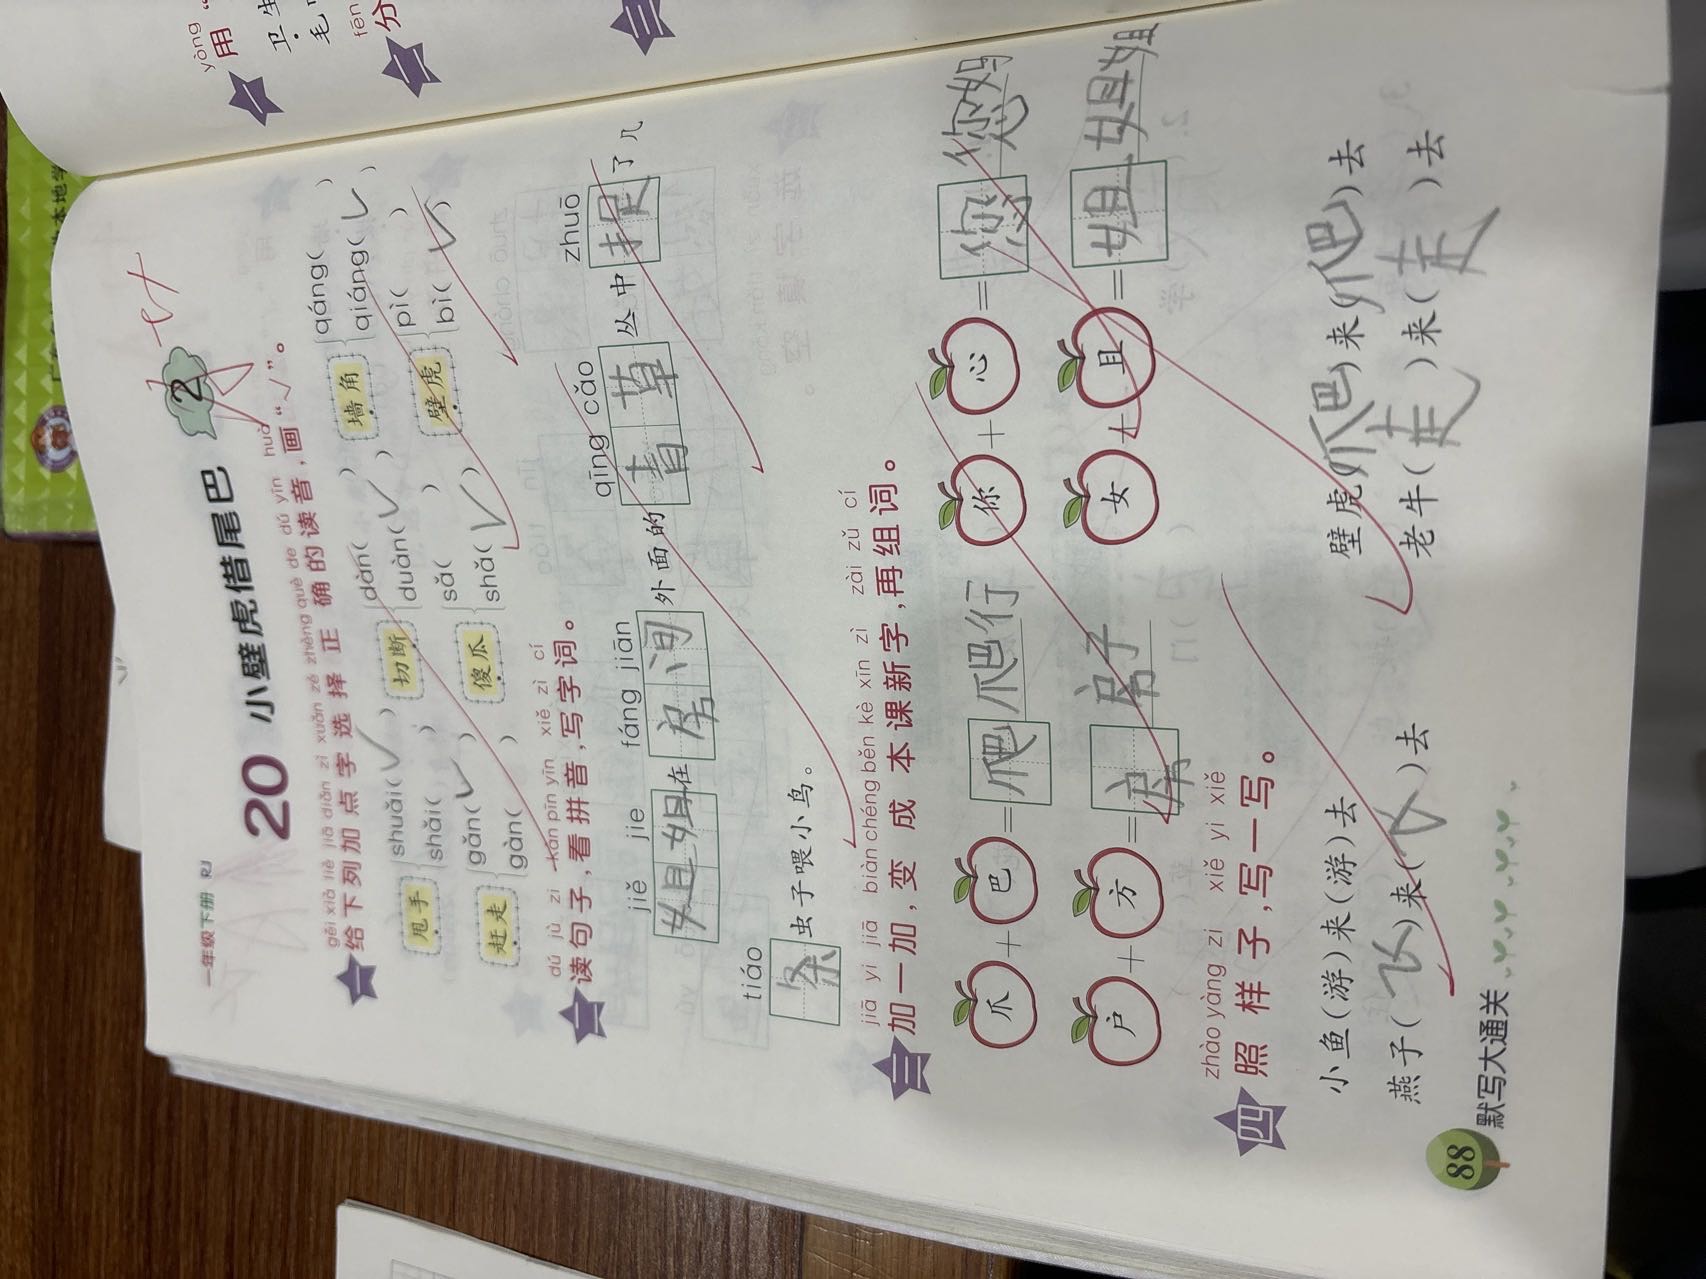 一年级下册 RJ
20 小壁虎借尾巴
2
gěi xià liè jiā diǎn zì xuǎn zé zhèng què de dú yīn huà
一 给下列加点字选择正确的读音,画“√”。
甩手 shuǎi(√) shǎi( ) 切断 dàn( ) duàn(√) 墙角 qáng( ) qiáng(√)
赶走 gǎn(√) gàn( ) 傻瓜 sǎ( ) shǎ(√) 壁虎 pì( ) bì(√)
dú jù zi kàn pīn yīn xiě zì cí
二 读句子,看拼音,写字词。
jiě jie fáng jiān qīng cǎo zhuō
姐姐在房间外面的青草丛中捉了几
tiáo
条虫子喂小鸟。
jiā yi jiā biàn chéng běn kè xīn zì zài zǔ cí
三 加一加,变成本课新字,再组词。
爪+巴=爬 爬行 你+心=您 您妈
户+方=房 房子 女+且=姐 姐姐
zhào yàng zi xiě yi xiě
四 照样子,写一写。
小鱼(游)来(游)去 壁虎(爬)来(爬)去
燕子(飞)来(飞)去 老牛(走)来(走)去
88 默写大通关
yòng
用“
卫生
毛
fēn
分